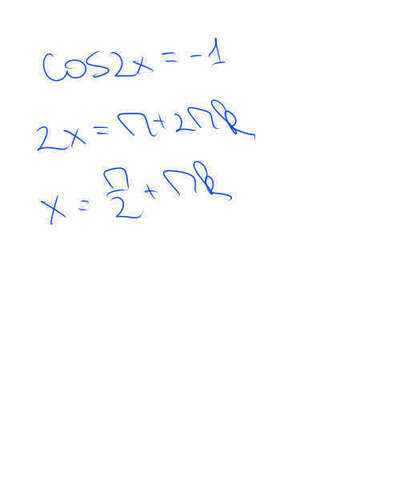 cos2x = -1
2x = π + 2πk
x = π/2 + πk